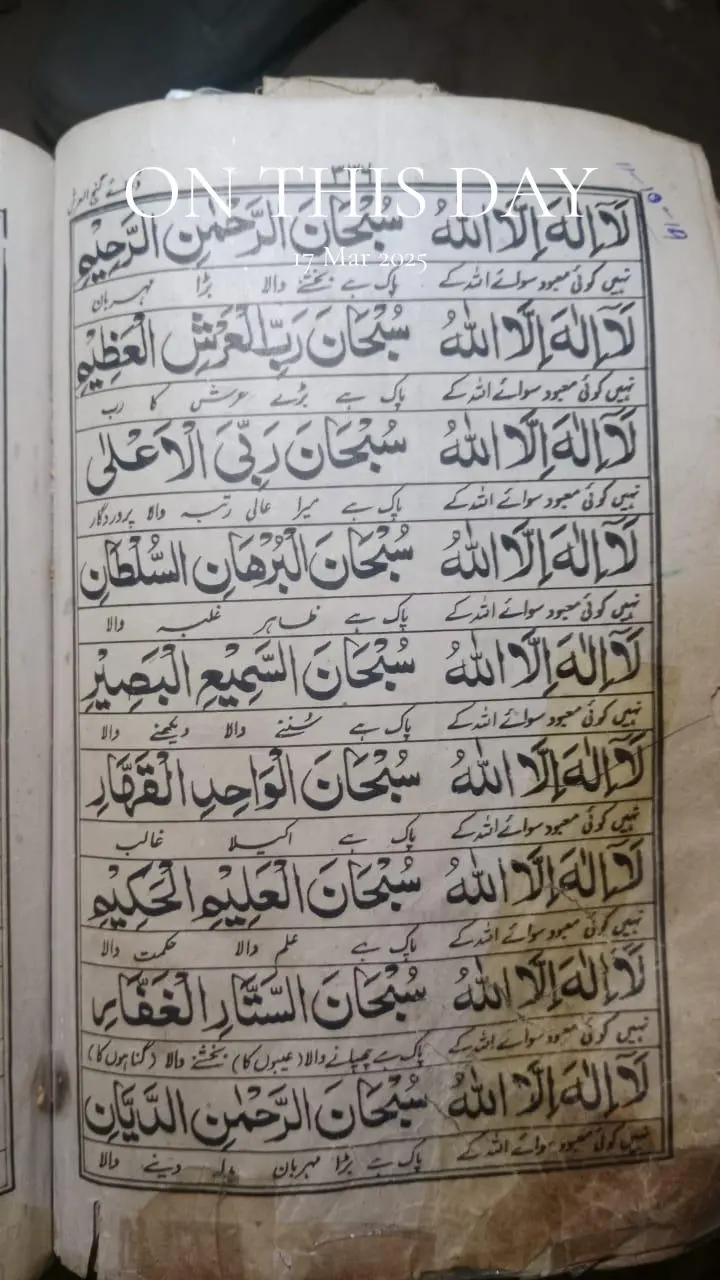 ON THIS DAY
17 Mar 2025
۳۳۷
لَآ اِلٰهَ اِلَّا اللّٰهُ سُبْحَانَ الرَّحْمٰنِ الرَّحِيْمِ
نہیں کوئی معبود سوائے اللہ کے پاک ہے بخشنے والا بڑا مہربان
لَآ اِلٰهَ اِلَّا اللّٰهُ سُبْحَانَ رَبِّ الْعَرْشِ الْعَظِيْمِ
نہیں کوئی معبود سوائے اللہ کے پاک ہے بڑے عرش کا رب
لَآ اِلٰهَ اِلَّا اللّٰهُ سُبْحَانَ رَبِّىَ الْاَعْلٰى
نہیں کوئی معبود سوائے اللہ کے پاک ہے میرا عالی رتبہ والا پروردگار
لَآ اِلٰهَ اِلَّا اللّٰهُ سُبْحَانَ الْبُرْهَانِ السُّلْطَانِ
نہیں کوئی معبود سوائے اللہ کے پاک ہے ظاہر غلبہ والا
لَآ اِلٰهَ اِلَّا اللّٰهُ سُبْحَانَ السَّمِيْعِ الْبَصِيْرِ
نہیں کوئی معبود سوائے اللہ کے پاک ہے سُننے والا دیکھنے والا
لَآ اِلٰهَ اِلَّا اللّٰهُ سُبْحَانَ الْوَاحِدِ الْقَهَّارِ
نہیں کوئی معبود سوائے اللہ کے پاک ہے اکیلا غالب
لَآ اِلٰهَ اِلَّا اللّٰهُ سُبْحَانَ الْعَلِيْمِ الْحَكِيْمِ
نہیں کوئی معبود سوائے اللہ کے پاک ہے علم والا حکمت والا
لَآ اِلٰهَ اِلَّا اللّٰهُ سُبْحَانَ السَّتَّارِ الْغَفَّارِ
نہیں کوئی معبود سوائے اللہ کے پاک ہے چھپانے والا (عیبوں کا) بخشنے والا (گناہوں کا)
لَآ اِلٰهَ اِلَّا اللّٰهُ سُبْحَانَ الرَّحْمٰنِ الدَّيَّانِ
نہیں کوئی معبود سوائے اللہ کے پاک ہے بڑا مہربان دینے والا